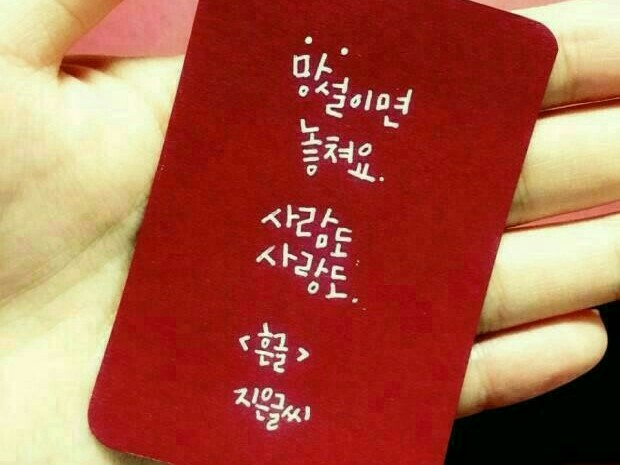 망설이면
놓쳐요.
사람도
사랑도.
<흔글>
지은글씨